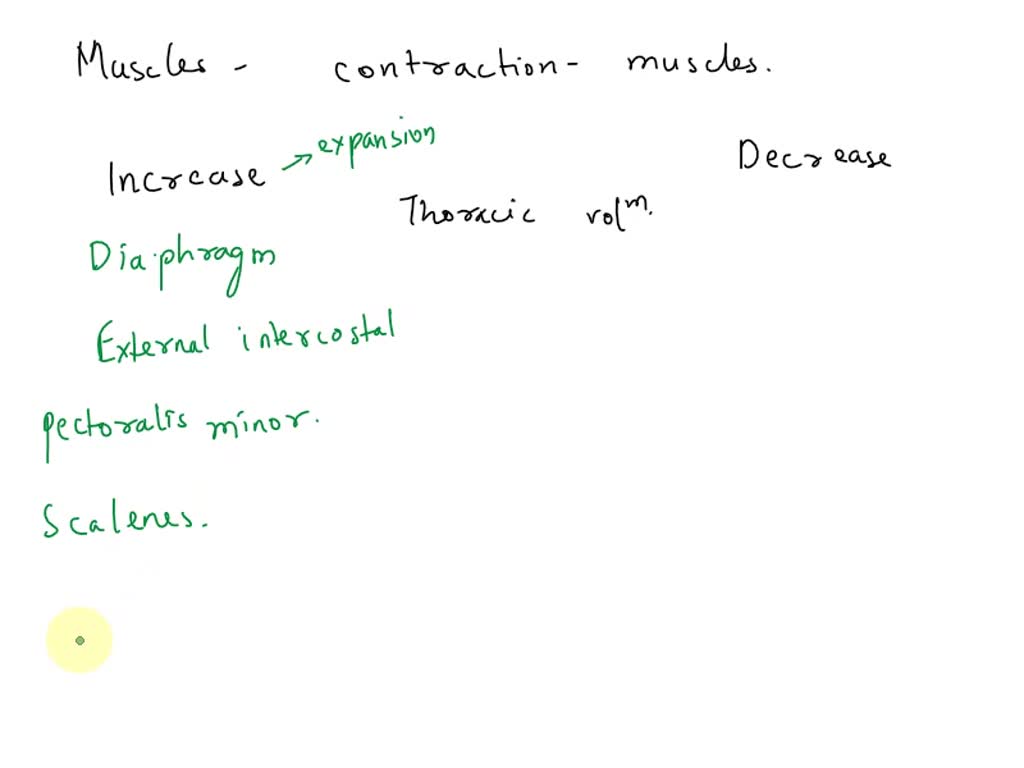 Muscles - contraction - muscles.
Increase → expansion
Decrease
Thoracic volm.
Diaphragm
External intercostal
Pectoralis minor.
Scalenes.